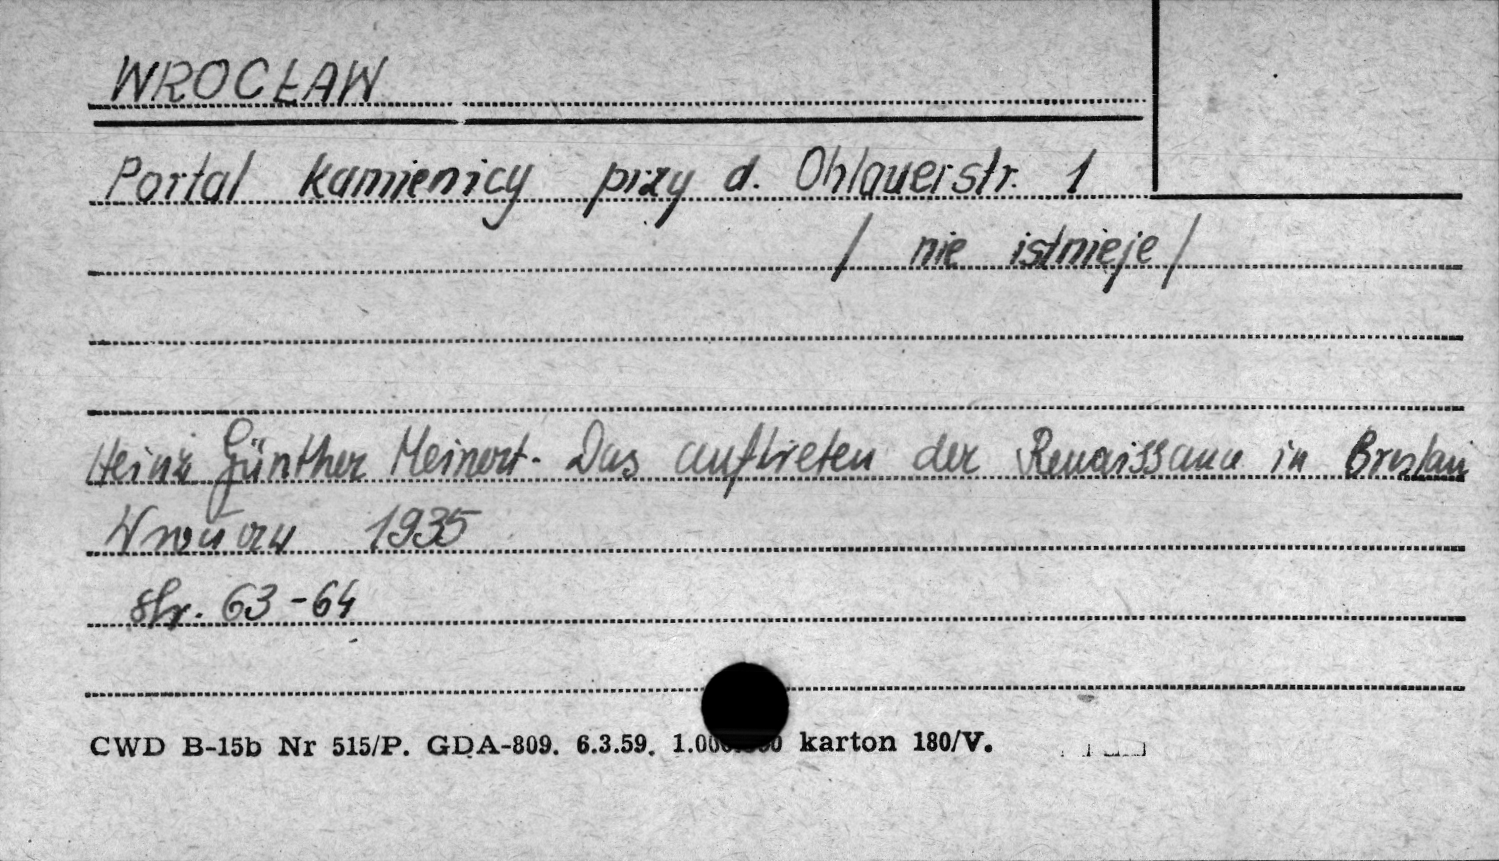 WROCŁAW
Portal kamienicy przy d. Ohlauerstr. 1
/ nie istnieje /
Heinz Günther Meinert. Das auftreten der Renaissance in Breslau
1935
str. 63-64
CWD B-15b Nr 515/P. GDA-809. 6.3.59. karton 180/V.